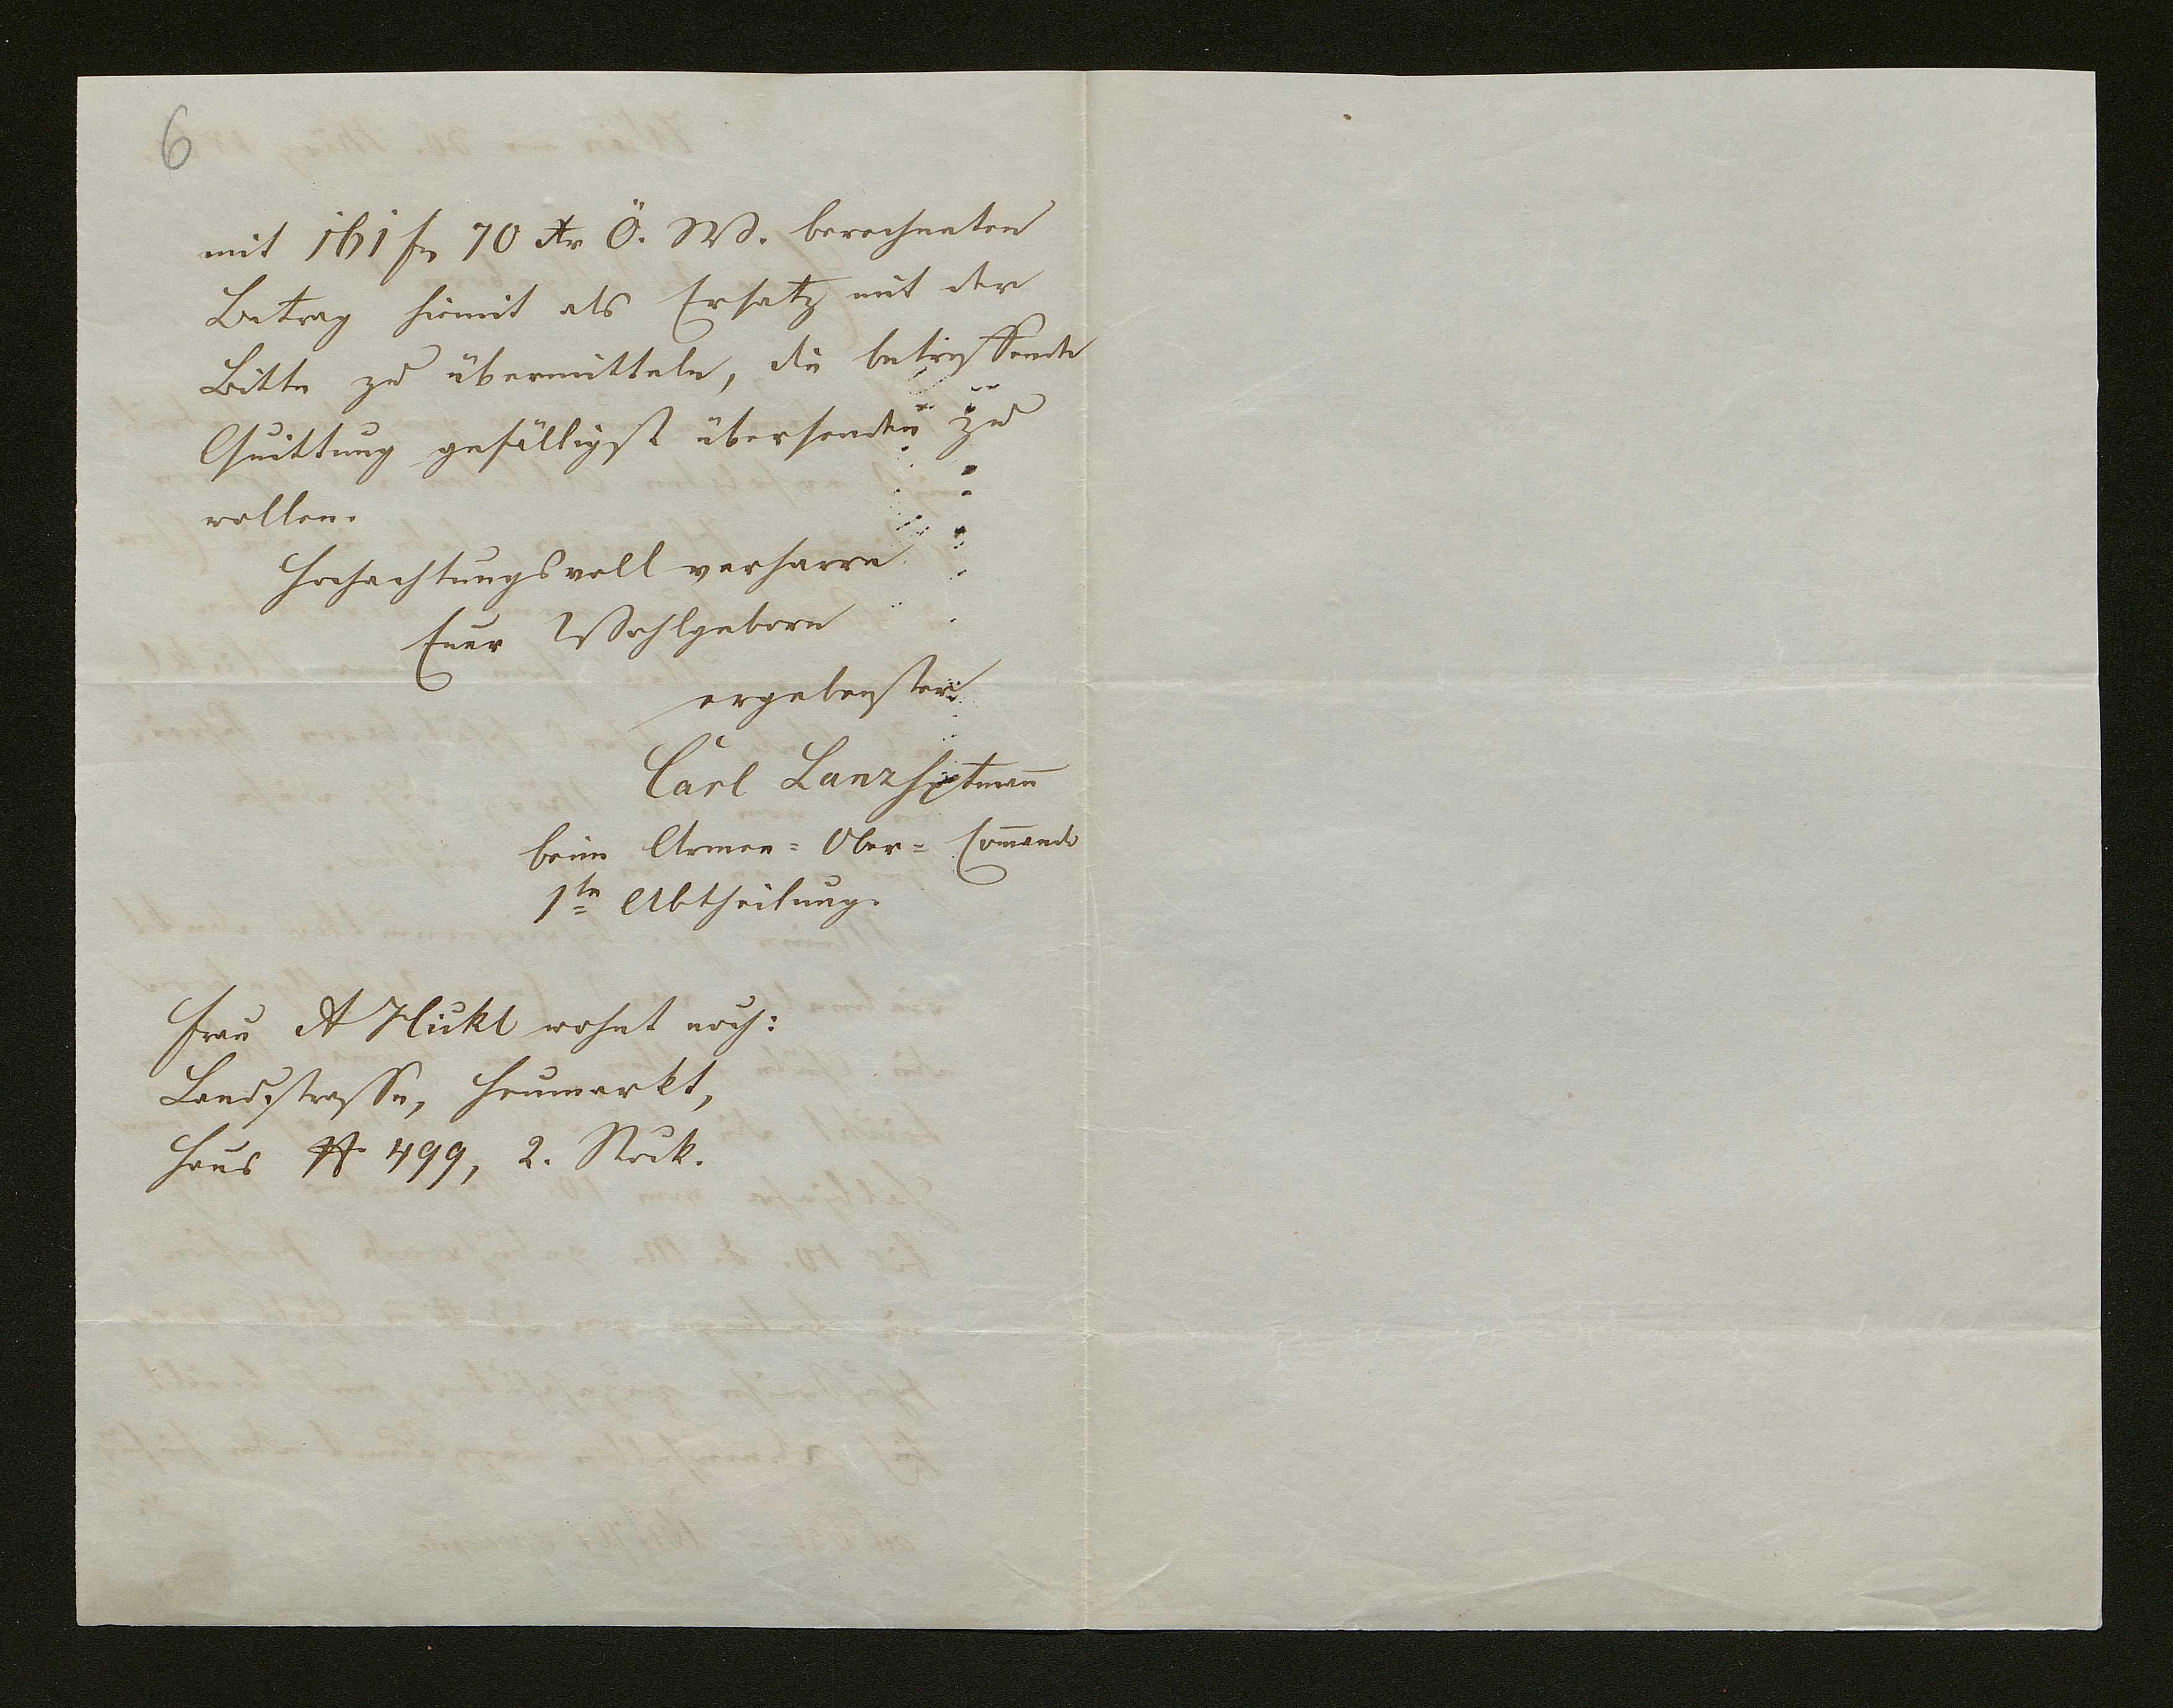 6
mit 161 fl 70 xr Ö. W. berechneten
Betrag hiemit als Ersatz mit der
Bitte zu übermitteln, die betreffende
Quittung gefälligst übersenden zu
wollen.
Hochachtungsvoll verharre
Euer Wohlgeborn
ergebenster
Carl Lanz Hptmann
beim Armee-Ober-Commando
1te Abtheilung.
Frau A Hickl wohnt noch:
Landstrasse, Heumarkt,
Haus N 499, 2. Stock.